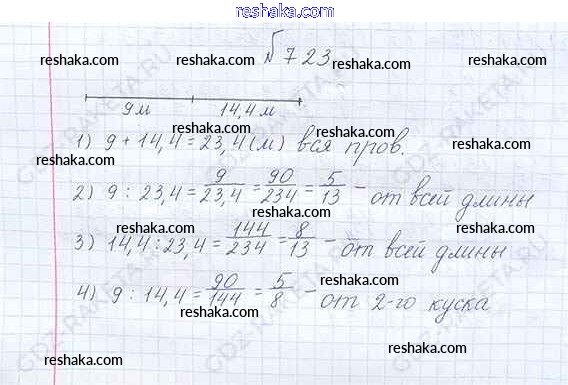 reshaka.com
№723
reshaka.com reshaka.com reshaka.com reshaka.com
9м 14,4м
reshaka.com reshaka.com
1) 9 + 14,4 = 23,4 (м) вся пров.
reshaka.com
2) 9 : 23,4 = 9/23,4 = 90/234 = 5/13 - от всей длины
reshaka.com reshaka.com reshaka.com
3) 14,4 : 23,4 = 144/234 = 8/13 - от всей длины
reshaka.com
4) 9 : 14,4 = 90/144 = 5/8 - от 2-го куска
reshaka.com reshaka.com
reshaka.com reshaka.com reshaka.com
GDZ-RAKETA.RU